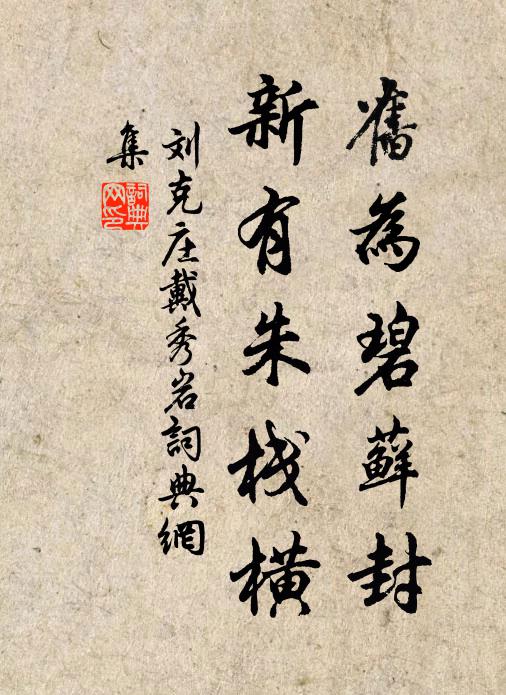 舊為碧蘚封
新有朱栈橫
刘克庄戴秀岩詞典網
集
詞典网印